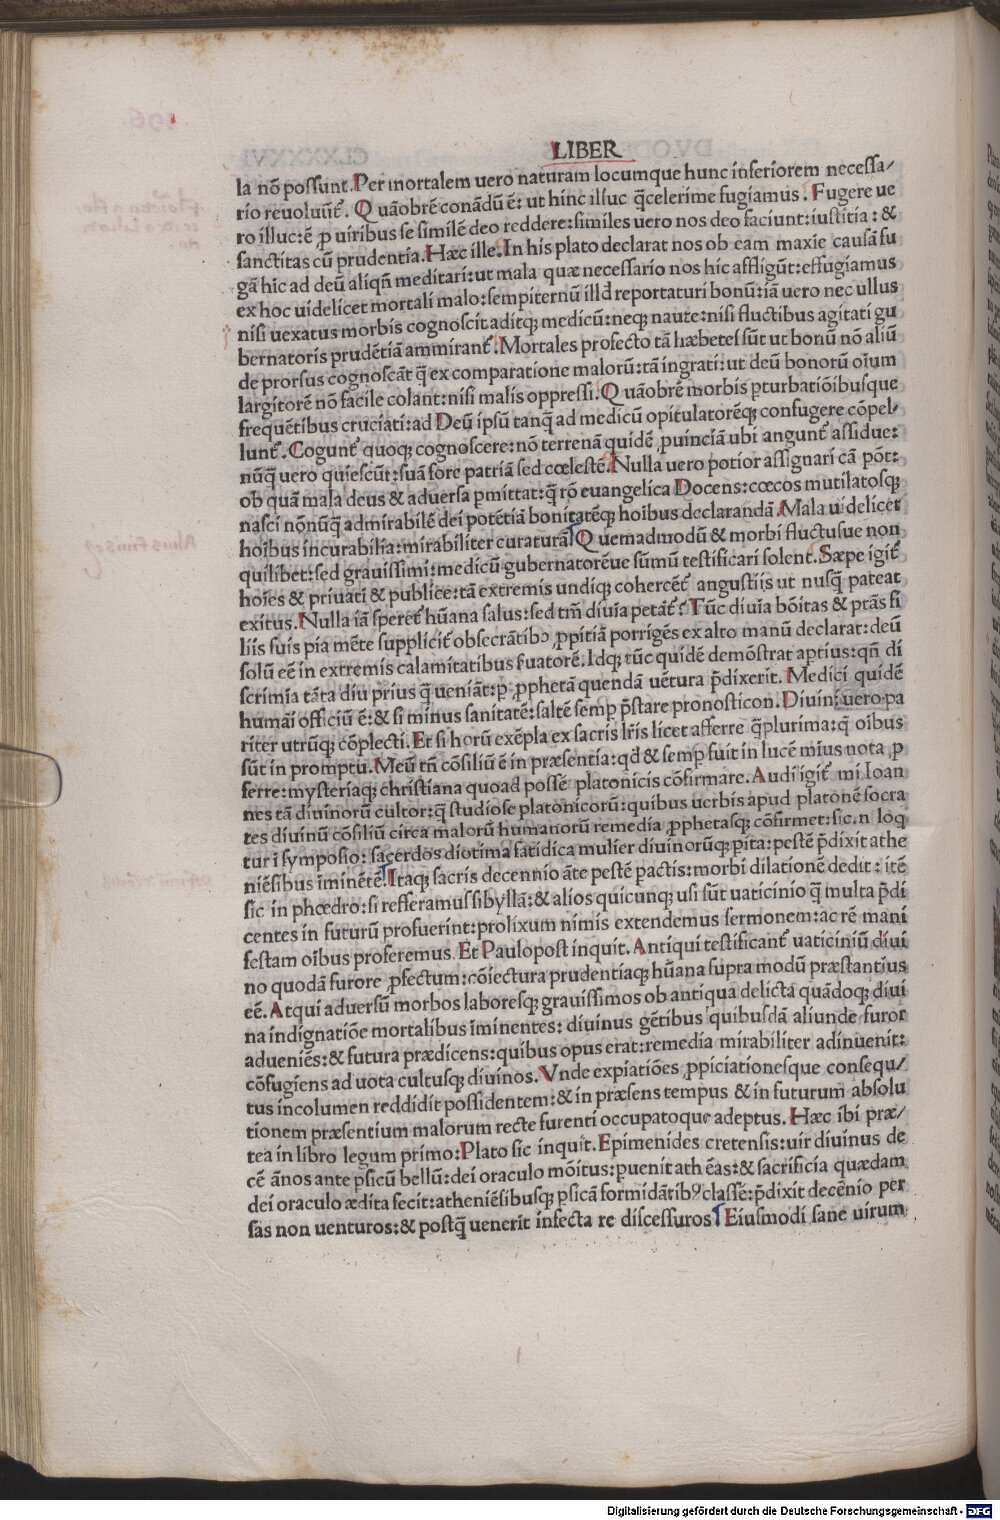 LIBER
la nõ possunt. Per mortalem uero naturam locumque hunc inferiorem necessa/
rio reuoluũt᷑. Quãobrẽ conãdũ ẽ: ut hinc illuc q̃celerime fugiamus. Fugere ue
ro illuc: ẽ ꝓ uiribus se similẽ deo reddere: similes uero nos deo faciunt: iustitia: &
sanctitas cũ prudentia. Hæc ille. In his plato declarat nos ob eam maxie causã fu
gã hic ad deũ aliqñ meditari: ut mala quæ necessario nos hic affligũt: effugiamus
ex hoc uidelicet mortali malo: sempiternũ illd̃ reportaturi bonũ: iã uero nec ullus
nisi uexatus morbis cognoscit aditqꝫ medicũ: neqꝫ naute: nisi fluctibus agitati gu
bernatoris prudẽtiã ammirant᷑. Mortales profecto tã hæbetes sũt ut bonũ nõ aliũ
de prorsus cognoscãt q̃ ex comparatione malorũ: tã ingrati: ut deũ bonorũ oĩum
largitorẽ nõ facile colant: nisi malis oppressi. Quãobrẽ morbis ꝑturbatiõibusque
frequẽtibus cruciati: ad Deũ ipsũ tanq̃ ad medicũ opitulatorẽqꝫ confugere cõpel/
lunt᷑. Cogunt᷑ quoqꝫ cognoscere: nõ terrenã quidẽ ꝓuinciã ubi angunt᷑ assidue:
nũq̃ uero quiescũt: suã fore patriã sed cœlestẽ. Nulla uero potior assignari cã põt:
ob quã mala deus & aduersa ꝑmittat: q̃ rõ euangelica Docens: cœcos mutilatosqꝫ
nasci nõnũq̃ admirabilẽ dei potẽtiã bonitatẽqꝫ hoibus declarandã. Mala uidelicet
hoibus incurabilia: mirabiliter curaturã. Quemadmodũ & morbi fluctusue non
quilibet: sed grauissimi: medicũ gubernatorẽue sũmũ testificari solent. Sæpe igit᷑
hoies & priuati & publice: tã extremis undiqꝫ cohercẽt᷑ angustiis ut nusq̃ pateat
exitus. Nulla iã speret᷑ hũana salus: sed tm̃ diuĩa petãt᷑: Tũc diuĩa bõitas & ptãs fi
liis suis pia mẽte supplicit᷑ obsecrãtibꝰ ꝓpitiã porrigẽs ex alto manũ declarat: deũ
solũ eẽ in extremis calamitatibus ẜuatorẽ. Idqꝫ tũc quidẽ demõstrat aptius: qñ di
scrimia tãta diu prius q̃ ueniãt: ꝑ ꝓphetã quendã uẽtura p̃dixerit. Medici quidẽ
humãi officiũ ẽ: & si minus sanitatẽ: saltẽ semꝑ p̃stare pronosticon. Diuini uero pa
riter utrũqꝫ cõplecti. Et si horũ exẽpla ex sacris lr̃is licet afferre q̃plurima: q̃ oĩbus
sũt in promptu. Meũ tñ cõsiliũ ẽ in præsentia: qd̃ & semꝑ fuit in lucẽ mĩus nota ꝓ
ferre: mysteriaqꝫ christiana quoad possẽ platonicis cõfirmare. Audi igit᷑ mi Ioan
nes tã diuinorũ cultor: q̃ studiose platonicorũ: quibus uerbis apud platonẽ socra
tes diuinũ cõsiliũ circa malorũ humanorũ remedia ꝓphetasqꝫ cõfirmet: sic. n loq
tur ĩ symposio: sacerdos diotima fatidica mulier diuinorũqꝫ ꝑita: pestẽ p̃dixit athe
niẽsibus ĩminẽtẽ. Itaqꝫ sacris decennio ãte pestẽ ꝑactis: morbi dilationẽ dedit: itẽ
sic in phœdro: si refferamus sibyllã: & alios quicunqꝫ usi sũt uaticinio q̃ multa p̃di
centes in futurũ profuerint: prolixum nimis extendemus sermonem: ac rẽ mani
festam oĩbus proferemus. Et Paulopost inquit. Antiqui testificant᷑ uaticiniũ diui
no quodã furore ꝑfectum: cõiectura prudentiaqꝫ hũana supra modũ præstantius
eẽ. Atqui aduersũ morbos laboresqꝫ grauissimos ob antiqua delicta quãdoqꝫ diui
na indignatiõe mortalibus ĩminentes: diuinus gẽtibus quibusdã aliunde furor
adueniẽs: & futura prædicens: quibus opus erat: remedia mirabiliter adinuenit:
cõfugiens ad uota cultusqꝫ diuinos. Vnde expiatiões ꝓpiciationesque consequ/
tus incolumen reddidit possidentem: & in præsens tempus & in futurum absolu
tionem præsentium malorum recte furenti occupatoque adeptus. Hæc ibi præ/
tea in libro legum primo: Plato sic inquit. Epimenides cretensis: uir diuinus de
cẽ ãnos ante ꝑsicũ bellũ: dei oraculo mõitus: ꝑuenit athẽas: & sacrificia quædam
dei oraculo ædita fecit: atheniẽsibusqꝫ ꝑsicã formidãtibꝰ classẽ: p̃dixit decẽnio per
sas non uenturos: & postq̃ uenerit infecta re discessuros. Eiusmodi sane uirum
Digitalisierung gefördert durch die Deutsche Forschungsgemeinschaft - DFG